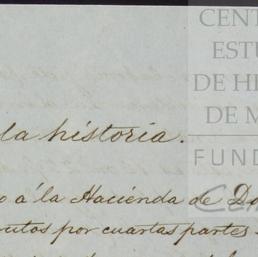 CENT
ESTU
DE HI
DE M
FUND
la historia.
o á la Hacienda de Do
utos por cuartas partes